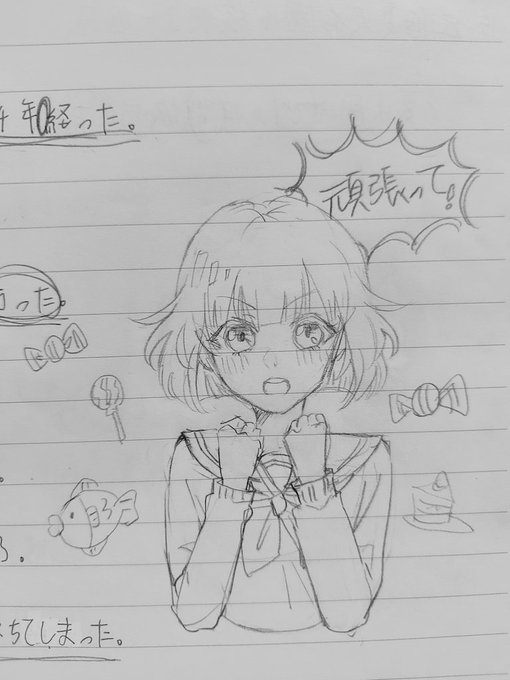 年経った。
頑張って!
った。
。
。
ちてしまった。